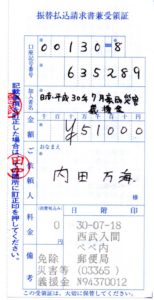 振替払込請求書兼受領証
口座記号番号
00130=8
635289
加入者名
日赤平成30年7月豪雨災害
義援金
金額
¥51000
ご依頼人
おなまえ
内田 万海
料金
(消費税込み)
0
備考
免除
災害等
義援金
日附印
30-07-18
西武入間
ペペ内
郵便局
(03365)
N94370012
この受領証は、大切に保管してください。
記載事項を訂正した場合は、その箇所に訂正印を押してください。